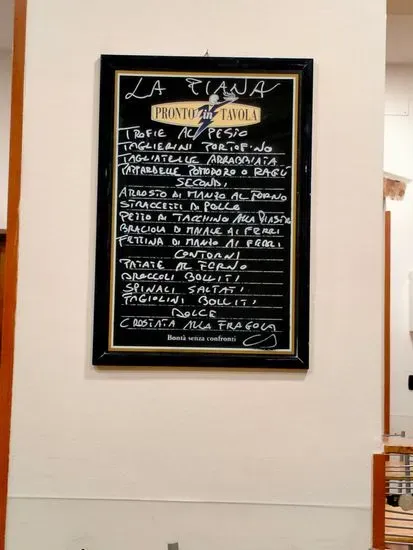 LA PIANA
PRONTO in TAVOLA
TROFIE AL PESTO
TAGLIERINI PORTOFINO
TAGLIATELLE ARRABBIATA
PAPPARDELLE POMODORO O RAGÙ
SECONDI
ARROSTO DI MANZO AL FORNO
STRACCETTI DI POLLO
PETTO DI TACCHINO ALLA
BRACIOLA DI MAIALE AI FERRI
FETTINA DI MANZO AI FERRI
CONTORNI
PATATE AL FORNO
BROCCOLI BOLLITI
SPINACI SALTATI
FAGIOLINI BOLLITI
DOLCE
CROSTATA ALLA FRAGOLA
Bontà senza confronti